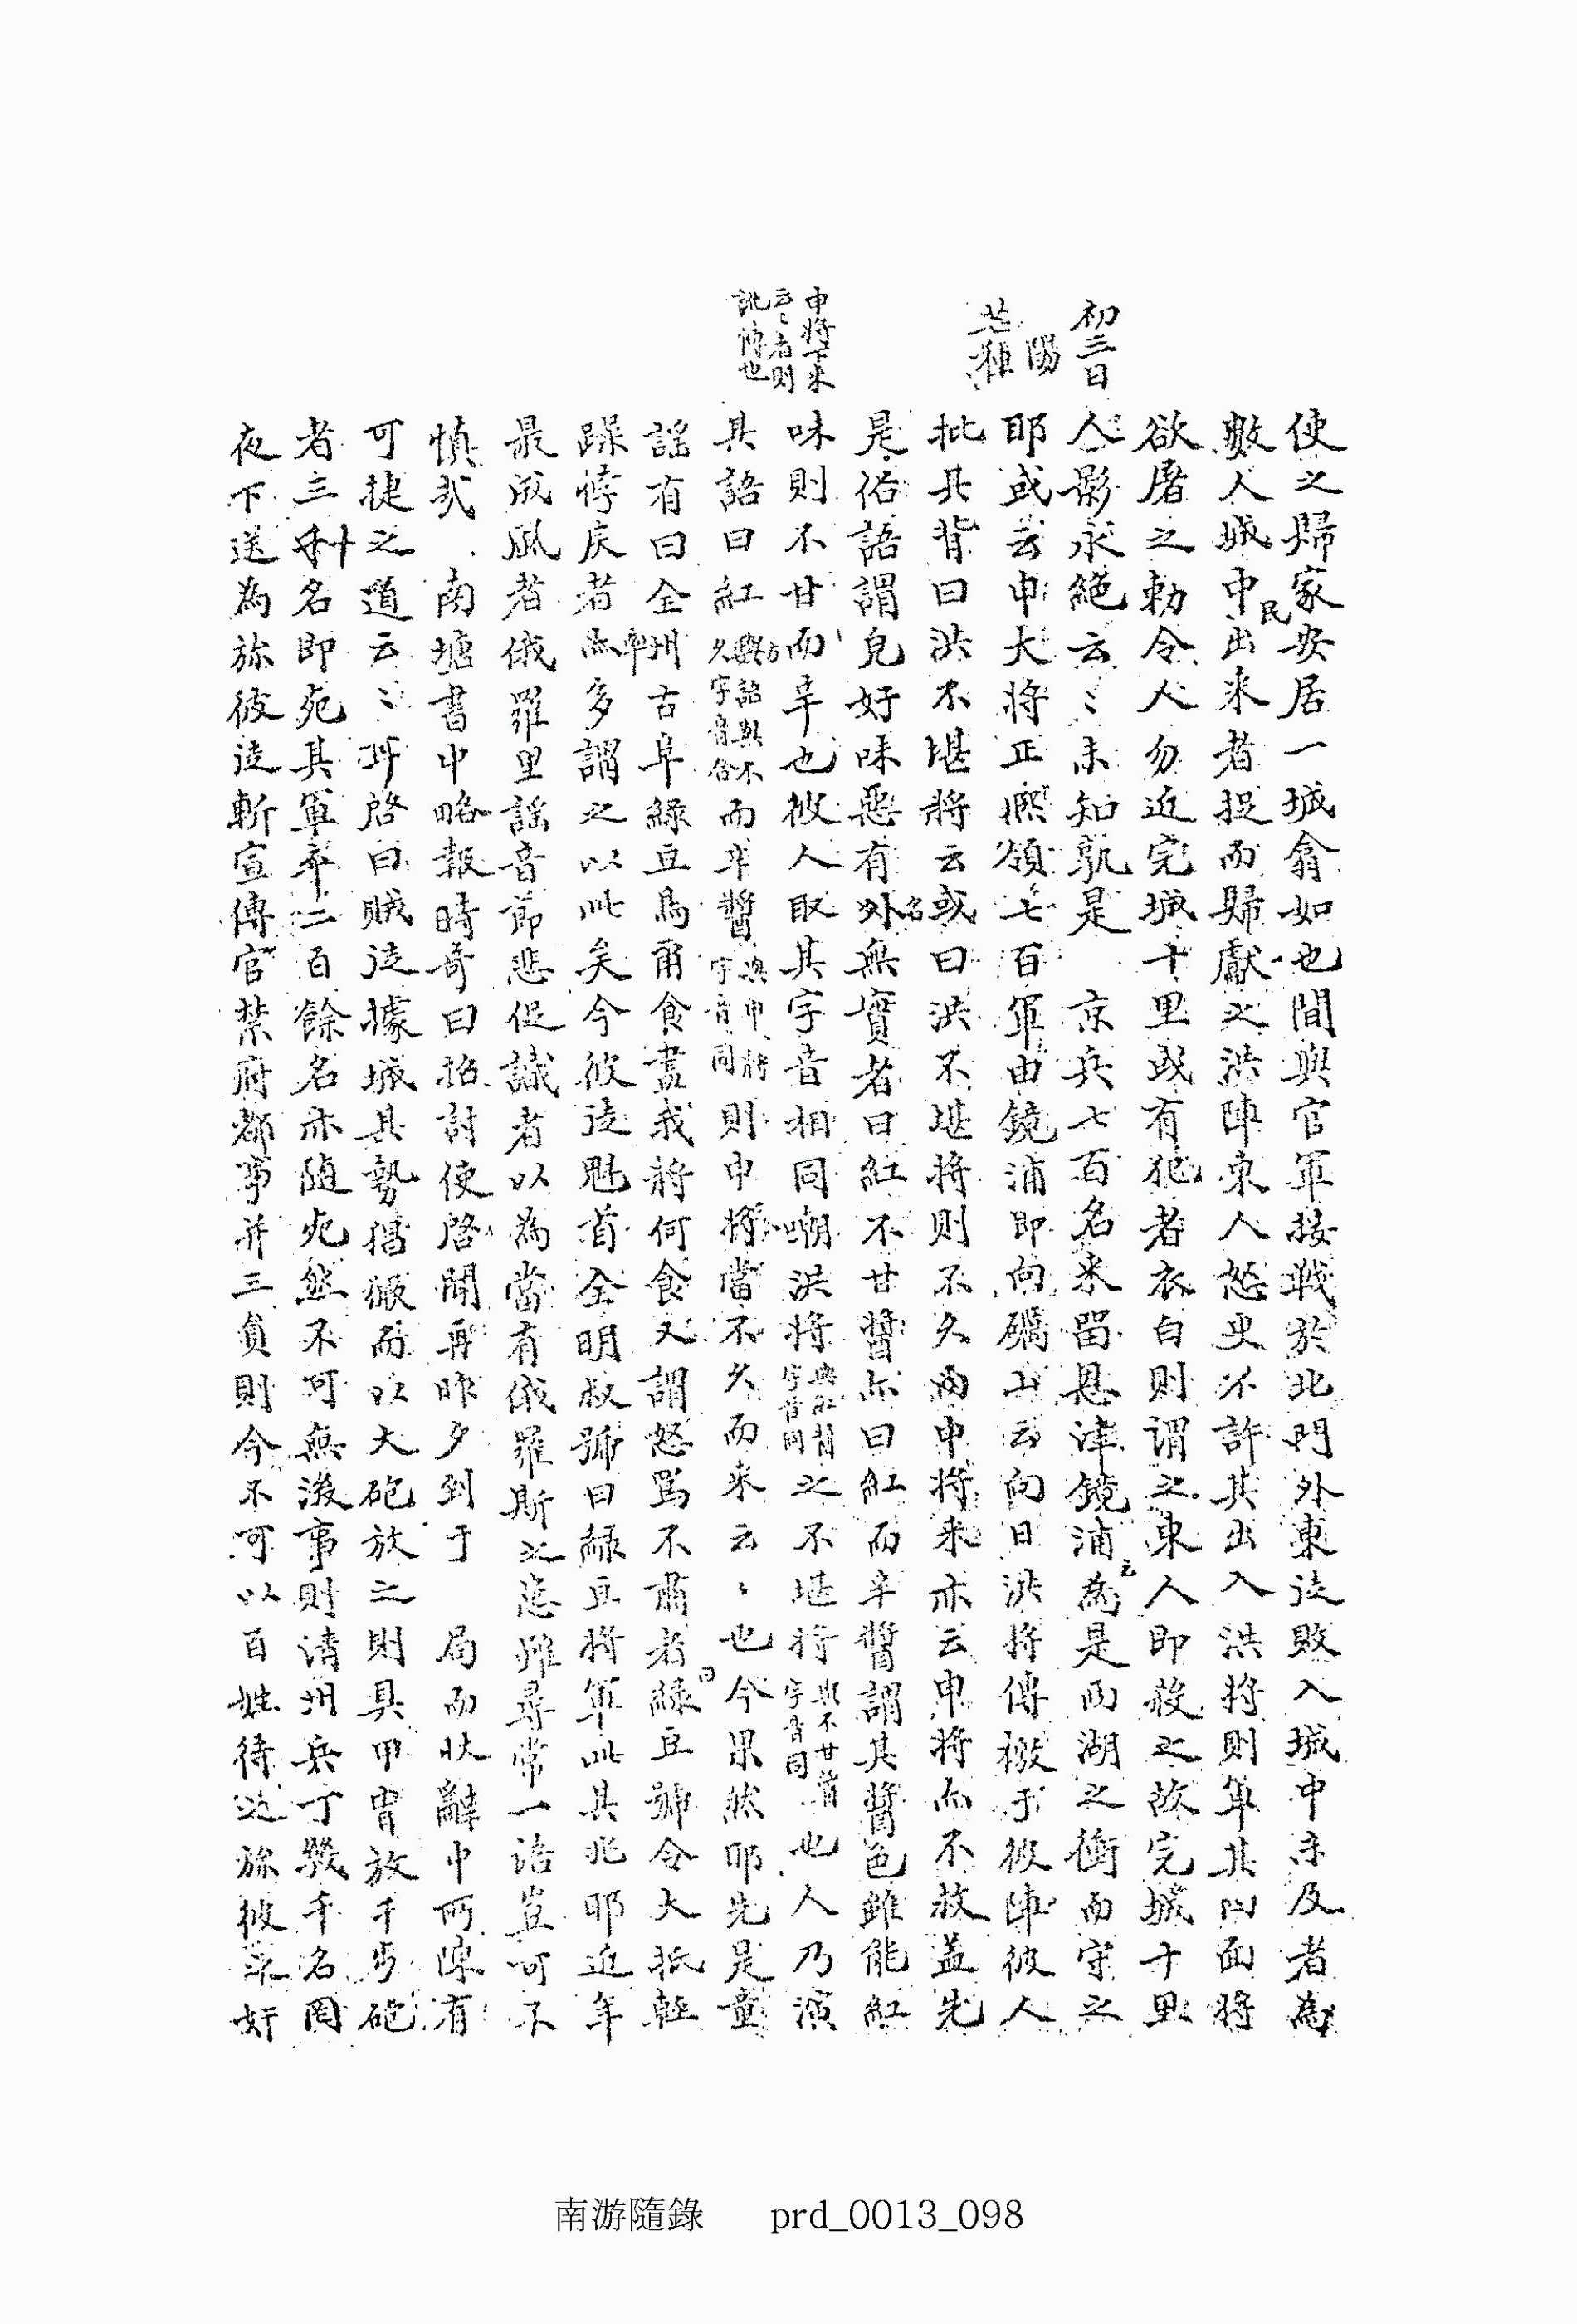 初三日
陽
芒種
申將下來
云〻者則
訛傳也
使之歸家安居一城翕如也間與官軍接戰於北門外東徒敗入城中未及者為
數人城中民出來者捉而歸獻之洪陣東人怒更不許其出入洪將則軍其四面將
欲屠之勅令人勿近完城十里或有犯者衣白則謂之東人即殺之故完城十里
人影永絕云〻未知孰是 京兵七百名來留恩津鏡浦云為是兩湖之衝而守之
耶或云申大將正熙領七百軍由鏡浦即向礪山云向日洪將傳檄于彼陣彼人
批其背曰洪不堪將云或曰洪不堪將則不久而申將來亦云申將而不救盖先
是俗語謂皃好味惡有名外無實者曰紅不甘醬亦曰紅而辛醬謂其醬色雖能紅
味則不甘而辛也彼人取其字音相同嘲洪將與紅醬字音同之不堪將與不甘醬字音同也人乃演
其語曰紅方與詔與不久字音合而辛醬與申將字音同則申將當不久而來云〻也今果然耶先是童
謠有曰全州古阜綠豆鳥甭食盡我將何食又謂怒罵不肅者曰綠豆號令大抵輕
躁悖戾者率多謂之以此矣今彼徒魁首全明叔號曰綠豆將軍此其兆耶近年
最成風者俄羅里謠音節悲促識者以為當有俄羅斯之患雖尋常一語豈可不
慎哉 南塘書中略報時奇曰招討使啓聞再昨夕到于 局而狀辭中所陳有
可捷之道云〻耳啓曰賊徒據城其勢猖獗而以大砲放之則具甲冑放千步砲
者三十名即死其軍卒二百餘名亦隨死然不可無後事則淸州兵丁幾千名罔
夜下送為旀彼徒斬宣傳官禁府都事并三員則今不可以百姓待之旀彼之奸
南游隨錄 prd_0013_098